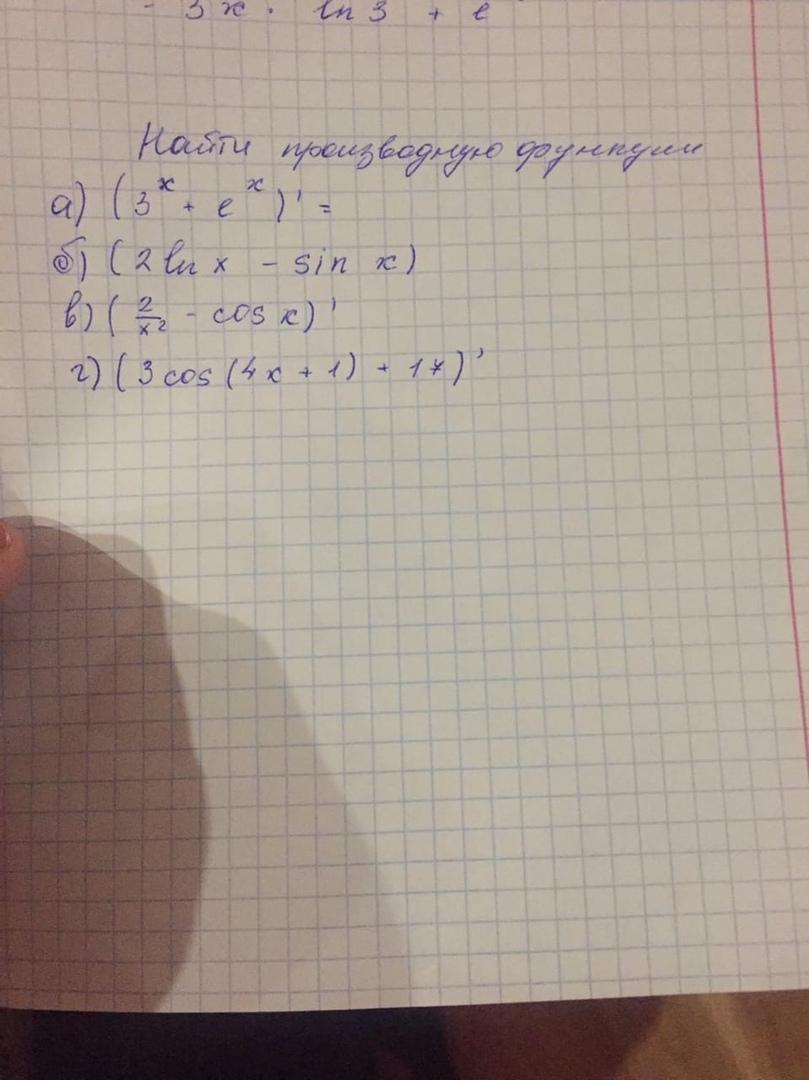 - 3x · ln 3 + e
Найти производную функции
а) (3ˣ + eˣ)' =
б) (2 ln x - sin x)
в) (2/x² - cos x)'
г) (3 cos (4x + 1) + 17)'